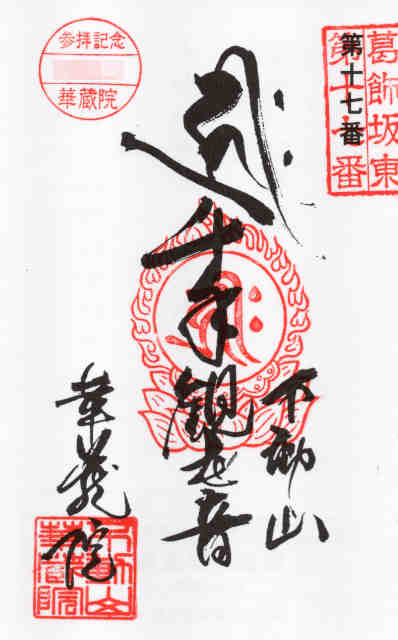 葛飾坂東
第十七番
第十七番
参拝記念
華蔵院
千手観世音
不動山
華蔵院